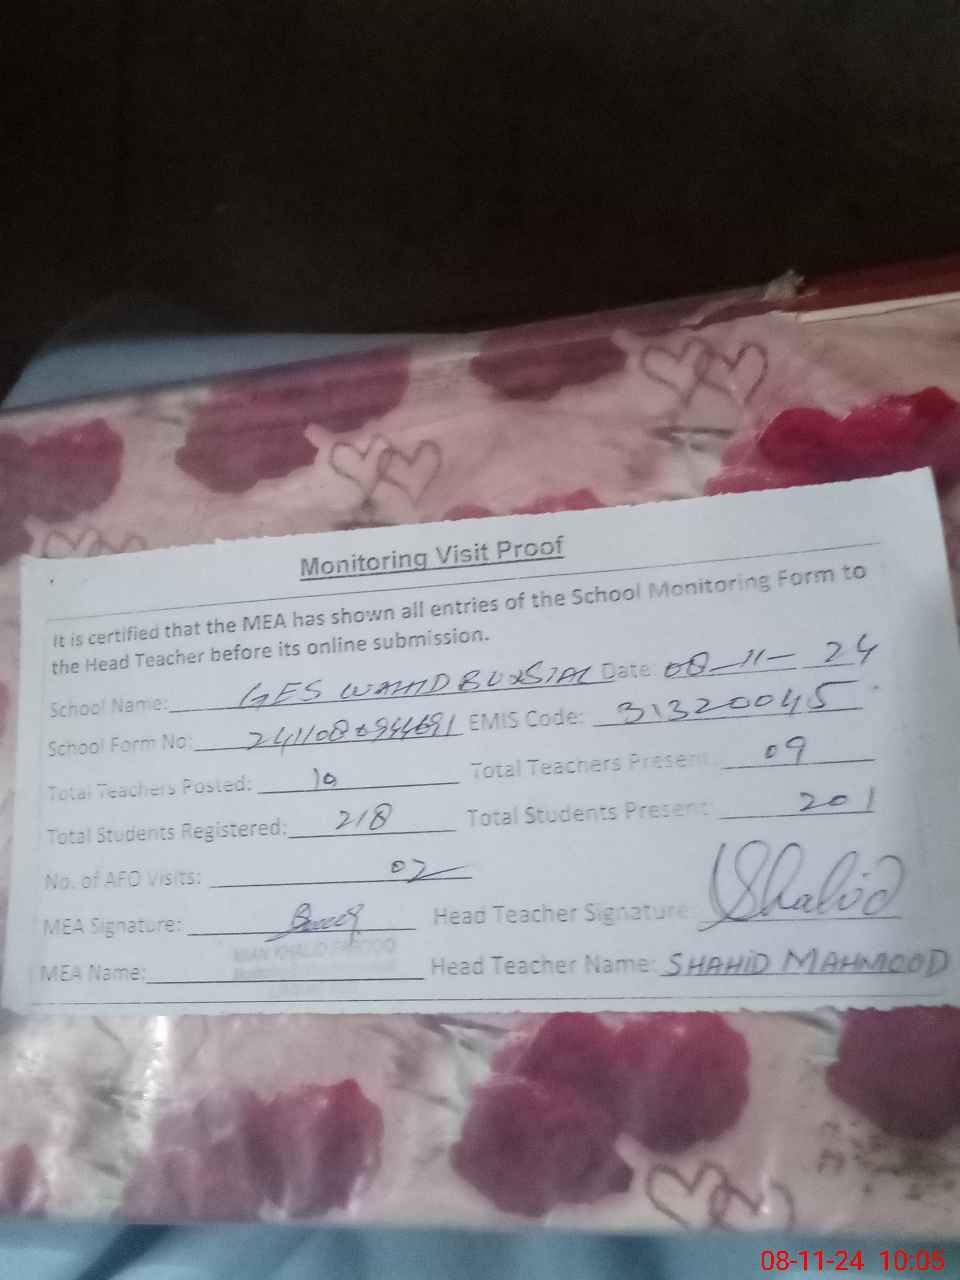 Monitoring Visit Proof
It is certified that the MEA has shown all entries of the School Monitoring Form to
the Head Teacher before its online submission.
School Name: GES WAHID BUXSIAL Date: 08-11-24
School Form No: EMIS Code: 31320045
Total Teachers Posted: 10 Total Teachers Present: 09
Total Students Registered: 218 Total Students Present: 201
No. of AFO Visits: 02
MEA Signature: Head Teacher Signature: Shahid
MIAN KHALID FAROOQ
MEA Name: Head Teacher Name: SHAHID MAHMOOD
08-11-24 10:05